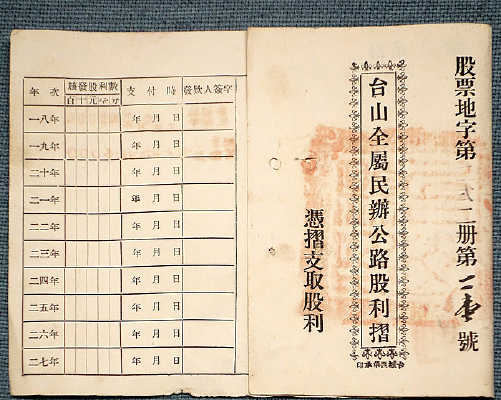 股票地字第二册第號
台山全屬民辦公路股利摺
憑摺支取股利
年次 發股利數 支付時 發欵人簽字
一八年 年月日
一九年 年月日
二十年 年月日
二一年 年月日
二二年 年月日
二三年 年月日
二四年 年月日
二五年 年月日
二六年 年月日
二七年 年月日